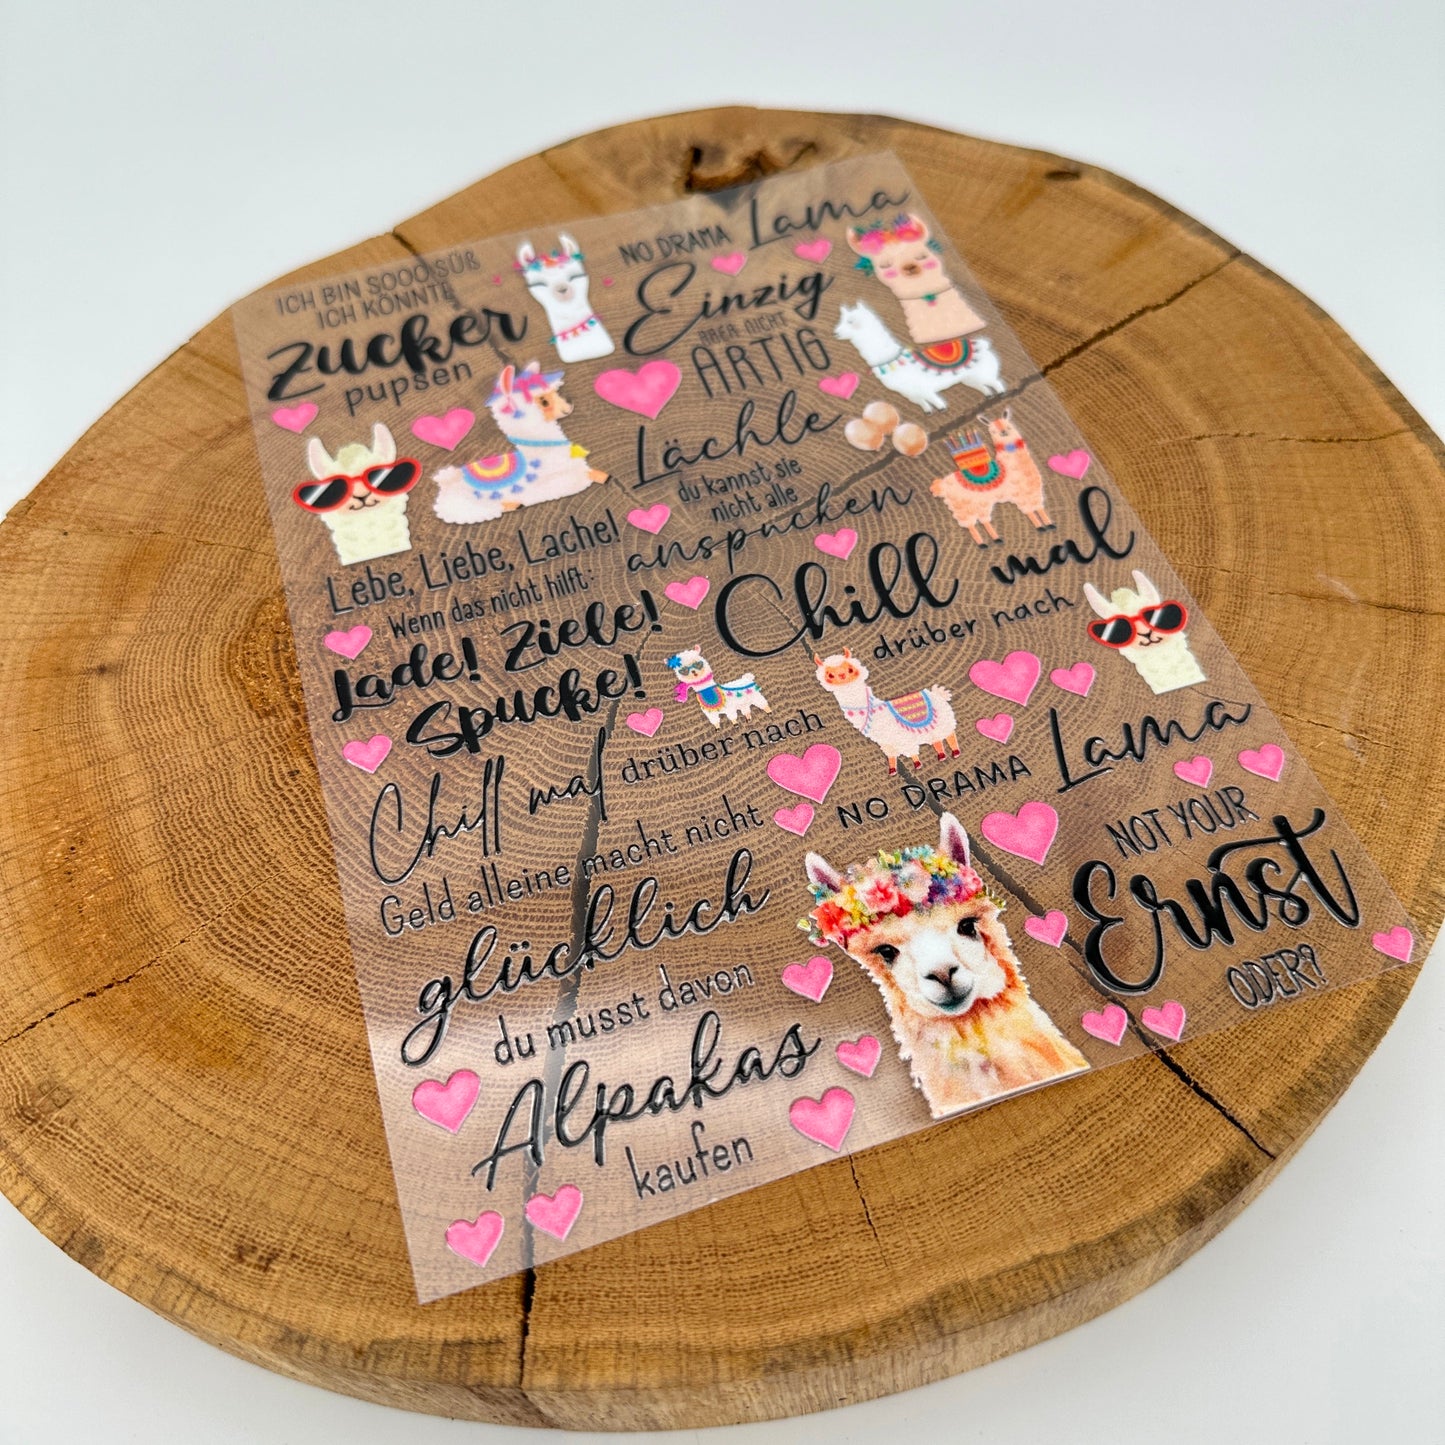 ICH BIN SOOO SÜß
ICH KÖNNTE
Zucker
pupsen
NO DRAMA Lama
Einzig
ABER NICHT
ARTIG
Lächle
du kannst sie
nicht alle
anspucken
Lebe, Liebe, Lache!
Wenn das nicht hilft:
Lade! Ziele!
Spucke!
Chill mal
drüber nach
Chill mal drüber nach
NO DRAMA Lama
Geld alleine macht nicht
glücklich
du musst davon
Alpakas
kaufen
NOT YOUR
Ernst
ODER?